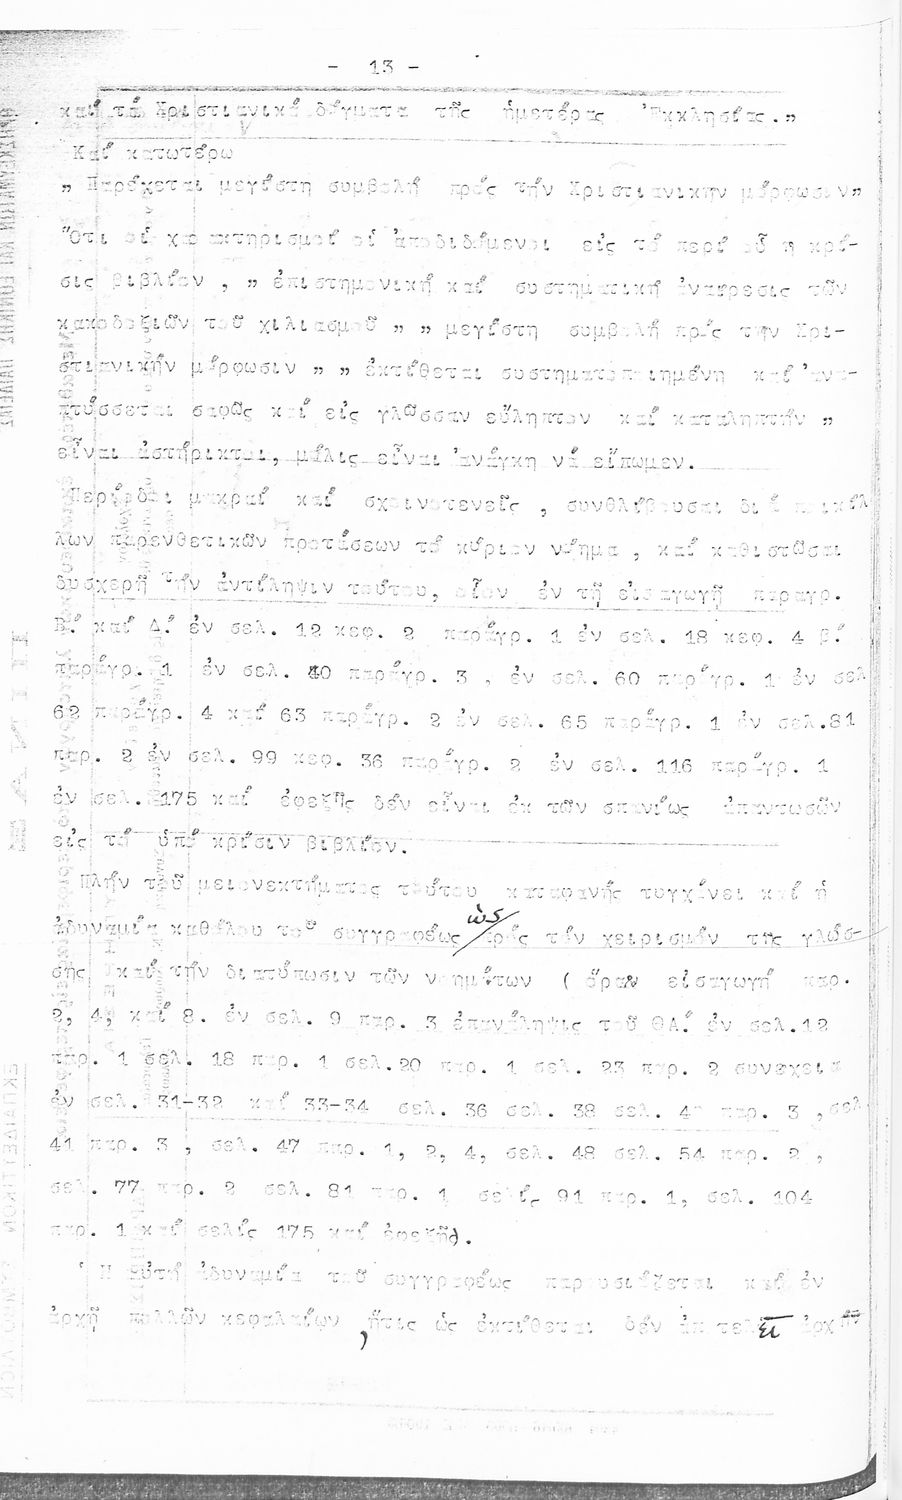 - 13 -
καί τά Χριστιανικά δόγματα τῆς ἡμετέρας Ἐκκλησίας.„
Καί κατωτέρω
„ Παρέχεται μεγίστη συμβολή πρός τήν Χριστιανικήν μόρφωσιν„
Ὅτι οἱ χαρακτηρισμοί οἱ ἀποδιδόμενοι εἰς τό περί οὗ ἡ κρί-
σις βιβλίον , „ ἐπιστημονική καί συστηματική ἀναίρεσις τῶν
κακοδοξιῶν τοῦ χιλιασμοῦ „ „ μεγίστη συμβολή πρός τήν Χρι-
στιανικήν μόρφωσιν „ „ ἐκτίθεται συστηματοποιημένη καί ἀνα-
πτύσσεται σαφῶς καί εἰς γλῶσσαν εὔληπτον καί καταληπτήν „
εἶναι ἀστήρικτοι, μόλις εἶναι ἀνάγκη νά εἴπωμεν.
Περίοδοι μακραί καί σχοινοτενεῖς , συνθλίβουσαι διά ποικίλ
λων παρενθετικῶν προτάσεων τό κύριον νόημα , καί καθιστῶσαι
δυσχερῆ τήν ἀντίληψιν τούτου, οἷον ἐν τῇ εἰσαγωγῇ παραγρ.
Β΄. καί Δ΄. ἐν σελ. 12 κεφ. 2 παράγρ. 1 ἐν σελ. 18 κεφ. 4 β΄.
παράγρ. 1 ἐν σελ. 40 παράγρ. 3 , ἐν σελ. 60 παράγρ. 1 ἐν σελ
62 παράγρ. 4 καί 63 παράγρ. 2 ἐν σελ. 65 παράγρ. 1 ἐν σελ.81
παρ. 2 ἐν σελ. 99 κεφ. 36 παράγρ. 2 ἐν σελ. 116 παράγρ. 1
ἐν σελ. 175 καί ἐφεξῆς δέν εἶναι ἐκ τῶν σπανίως ἀπαντωσῶν
εἰς τό ὑπό κρίσιν βιβλίον.
Πλήν τοῦ μειονεκτήματος τούτου καταφανής τυγχάνει καί ἡ
ἀδυναμία καθόλου τοῦ συγγραφέως ὡς πρός τόν χειρισμόν τῆς γλώσ-
σης καί τήν διατύπωσιν τῶν νοημάτων ( ὅρα εἰσαγωγή παρ.
2, 4, καί 8. ἐν σελ. 9 παρ. 3 ἐπανάληψις τοῦ ΘΑ΄. ἐν σελ.12
παρ. 1 σελ. 18 παρ. 1 σελ.20 παρ. 1 σελ. 23 παρ. 2 συνεχεια
ἐν σελ. 31-32 καί 33-34 σελ. 36 σελ. 38 σελ. παρ. 3 ,σελ
41 παρ. 3 , σελ. 47 παρ. 1, 2, 4, σελ. 48 σελ. 54 παρ. 2 ,
σελ. 77 παρ. 2 σελ. 81 παρ. 1 σελ. 91 παρ. 1, σελ. 104
παρ. 1 καί σελίς 175 καί ἐφεξῆς).
Ἡ αὐτή ἀδυναμία τοῦ συγγραφέως παρουσιάζεται καί ἐν
ἀρχῇ πολλῶν κεφαλαίων , ἥτις ὡς ἐκτίθεται δέν ἀποτελεῖ ἀρχήν